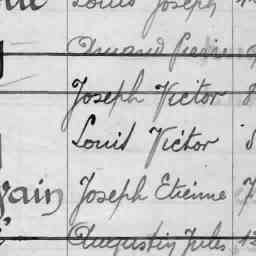 Louis Joseph
Armand Pierre
Joseph Victor
Louis Victor
Joseph Etienne
Augustin Jules